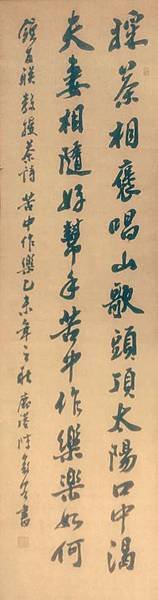 採茶相褒唱山歌頭頂太陽口中渴
夫妻相隨好幫手苦中作樂樂如何
錄百聯教援茶詩 苦中作樂乙未年之秋 唐湛陳書